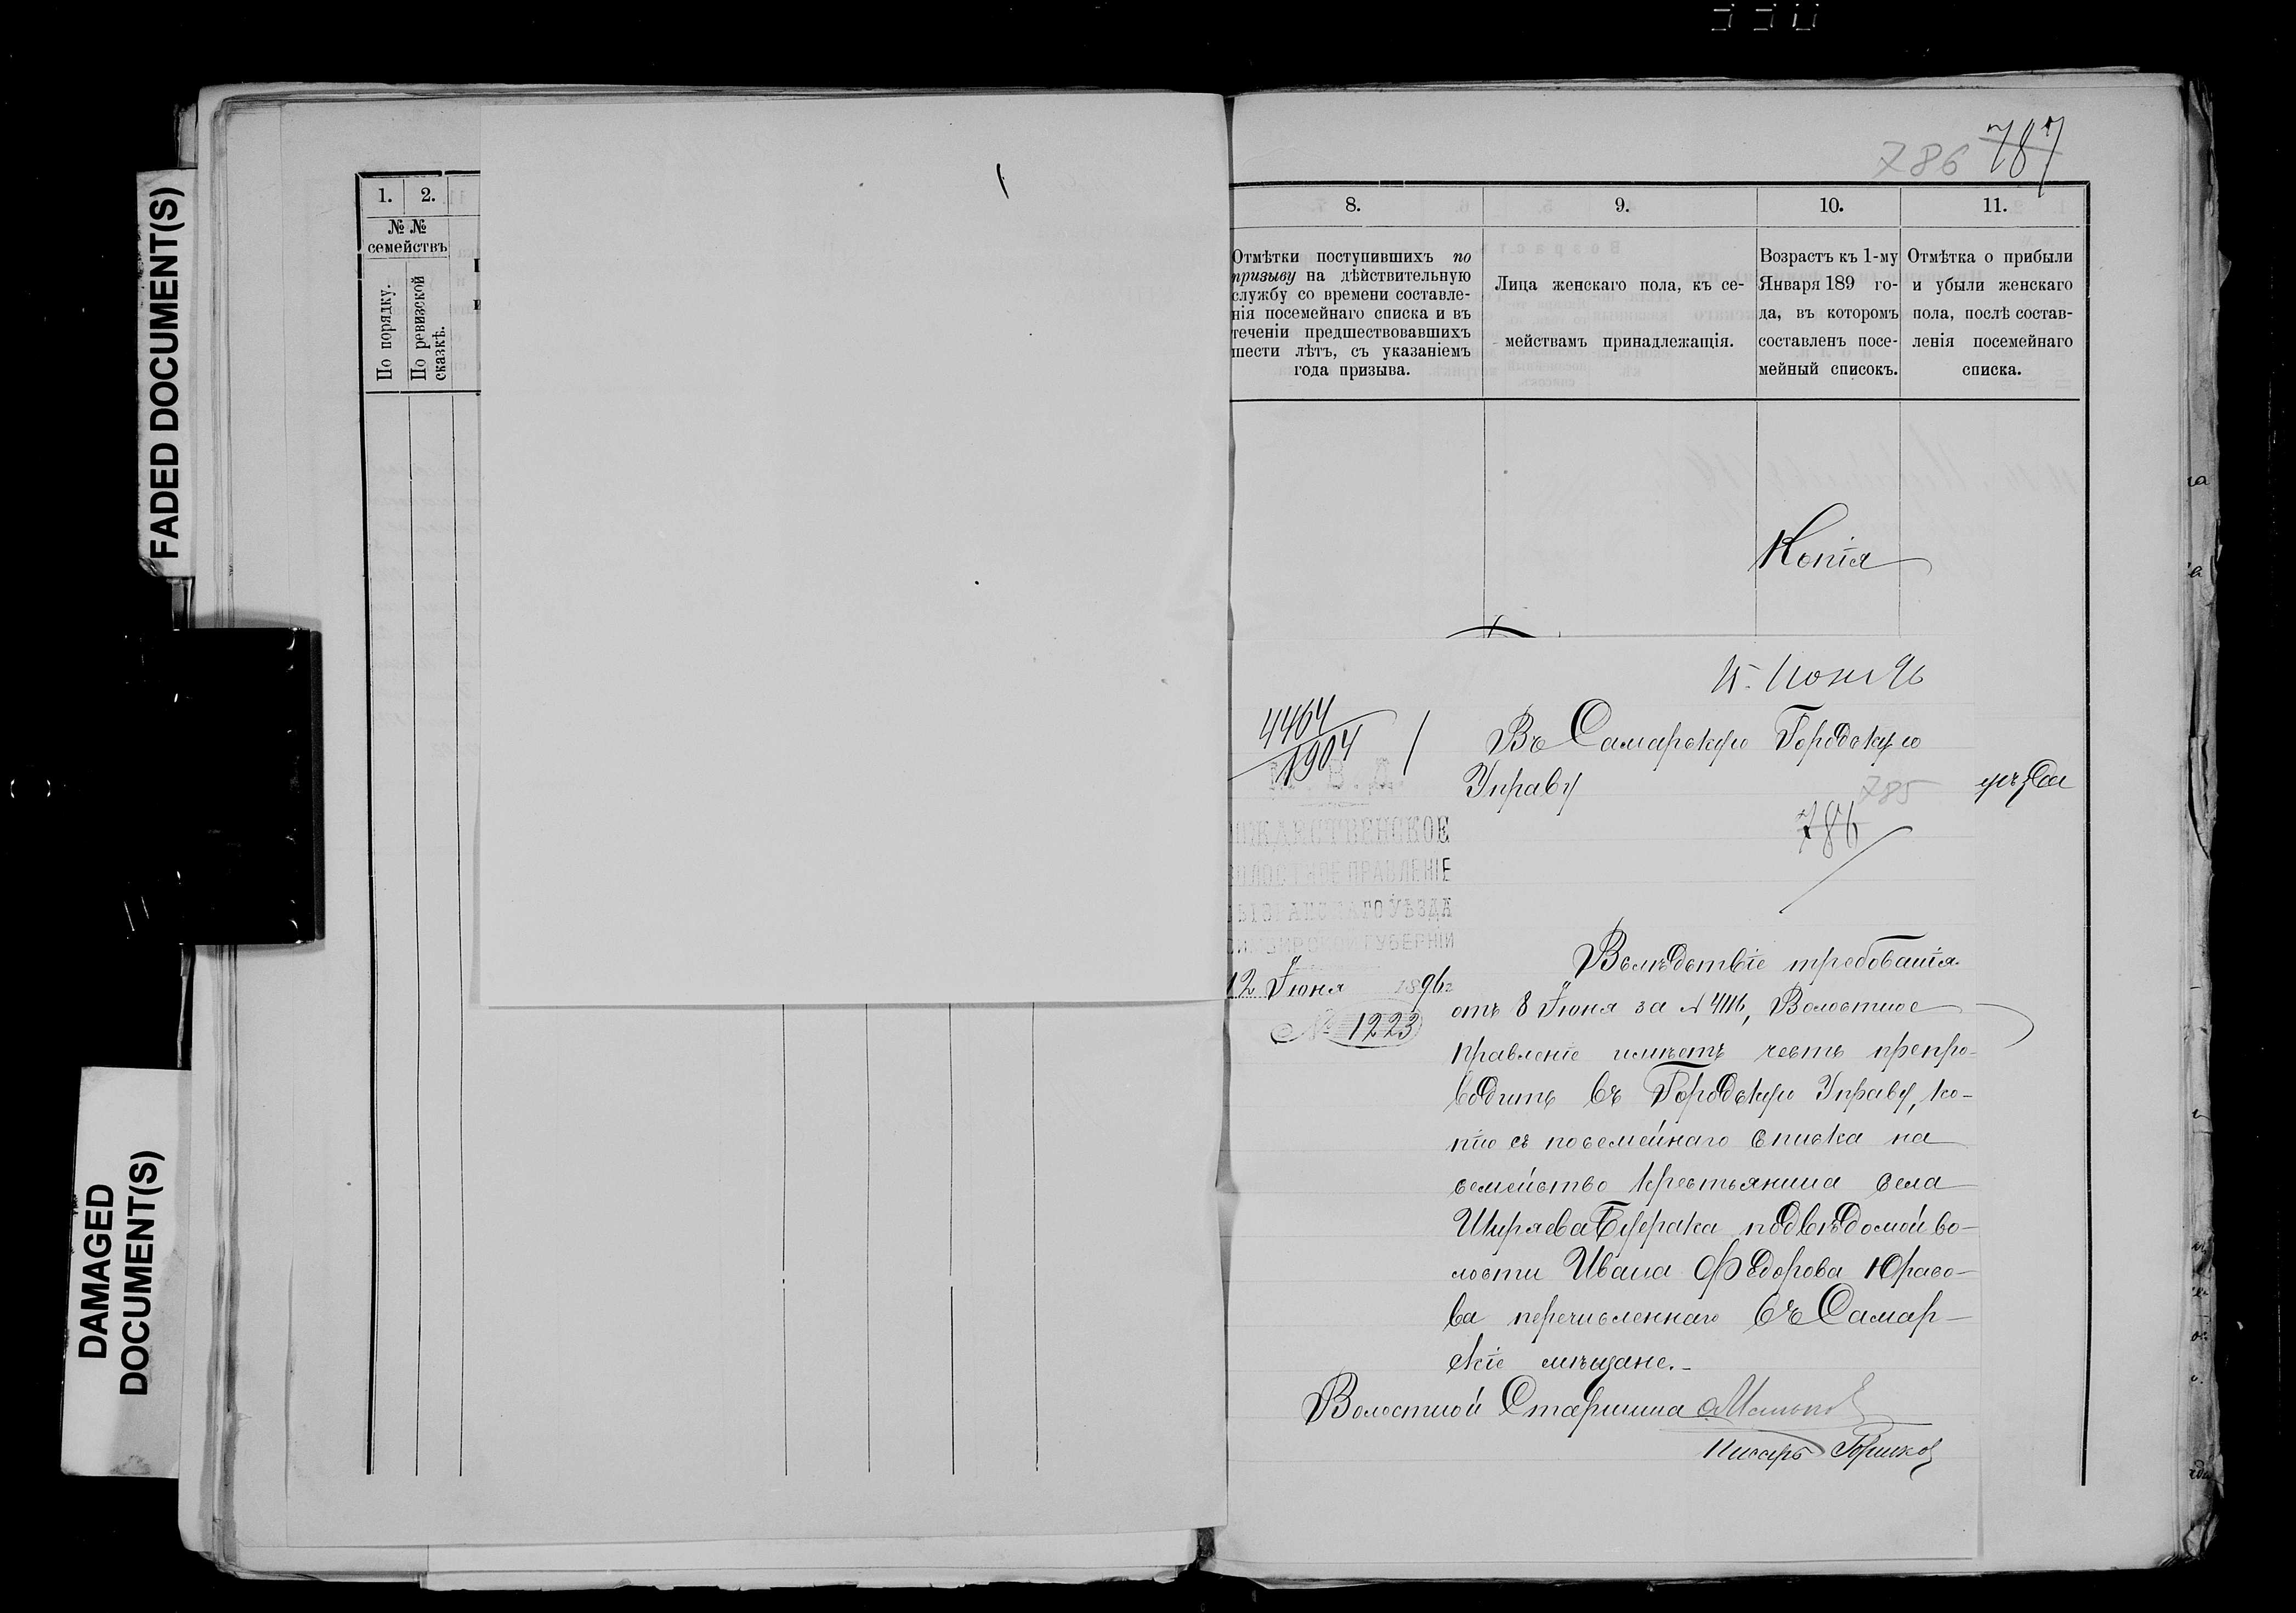 FADED DOCUMENT(S)
DAMAGED
DOCUMENT(S)
1. 2.
№ №
семействъ
По порядку.
По ревизской
сказкѣ.
786 787
8. 9. 10. 11.
Отмѣтки поступившихъ по
призыву на дѣйствительную
службу со времени составле-
нія посемейнаго списка и въ
теченіи предшествовавшихъ
шести лѣтъ, съ указаніемъ
года призыва.
Лица женскаго пола, къ се-
мействамъ принадлежащія.
Возрастъ къ 1-му
Января 189 го-
да, въ которомъ
составленъ посе-
мейный списокъ.
Отмѣтка о прибыли
и убыли женскаго
пола, послѣ состав-
ленія посемейнаго
списка.
Копія
15 Іюня 96
4464
1904
Въ Самарскую Городскую
Управу
уѣзда
785
786
М. В. Д.
ЖДЕСТВЕНСКОЕ
ВОЛОСТНОЕ ПРАВЛЕНІЕ
СЫЗРАНСКАГО УѢЗДА
СИМБИРСКОЙ ГУБЕРНІИ
12 Іюня 1896 г
№ 1223
Вслѣдствіе требованія
отъ 8 Іюня за № 4116, Волостное
Правленіе имѣетъ честь препро-
водить въ Городскую Управу, ко-
пію съ посемейнаго списка на
семейство крестьянина села
Ширяева Буерака подвѣдомой во-
лости Ивана Ѳедорова Юрасо-
ва перечисленнаго въ Самар-
скіе мѣщане.-
Волостной Старшина
Писарь Горшков